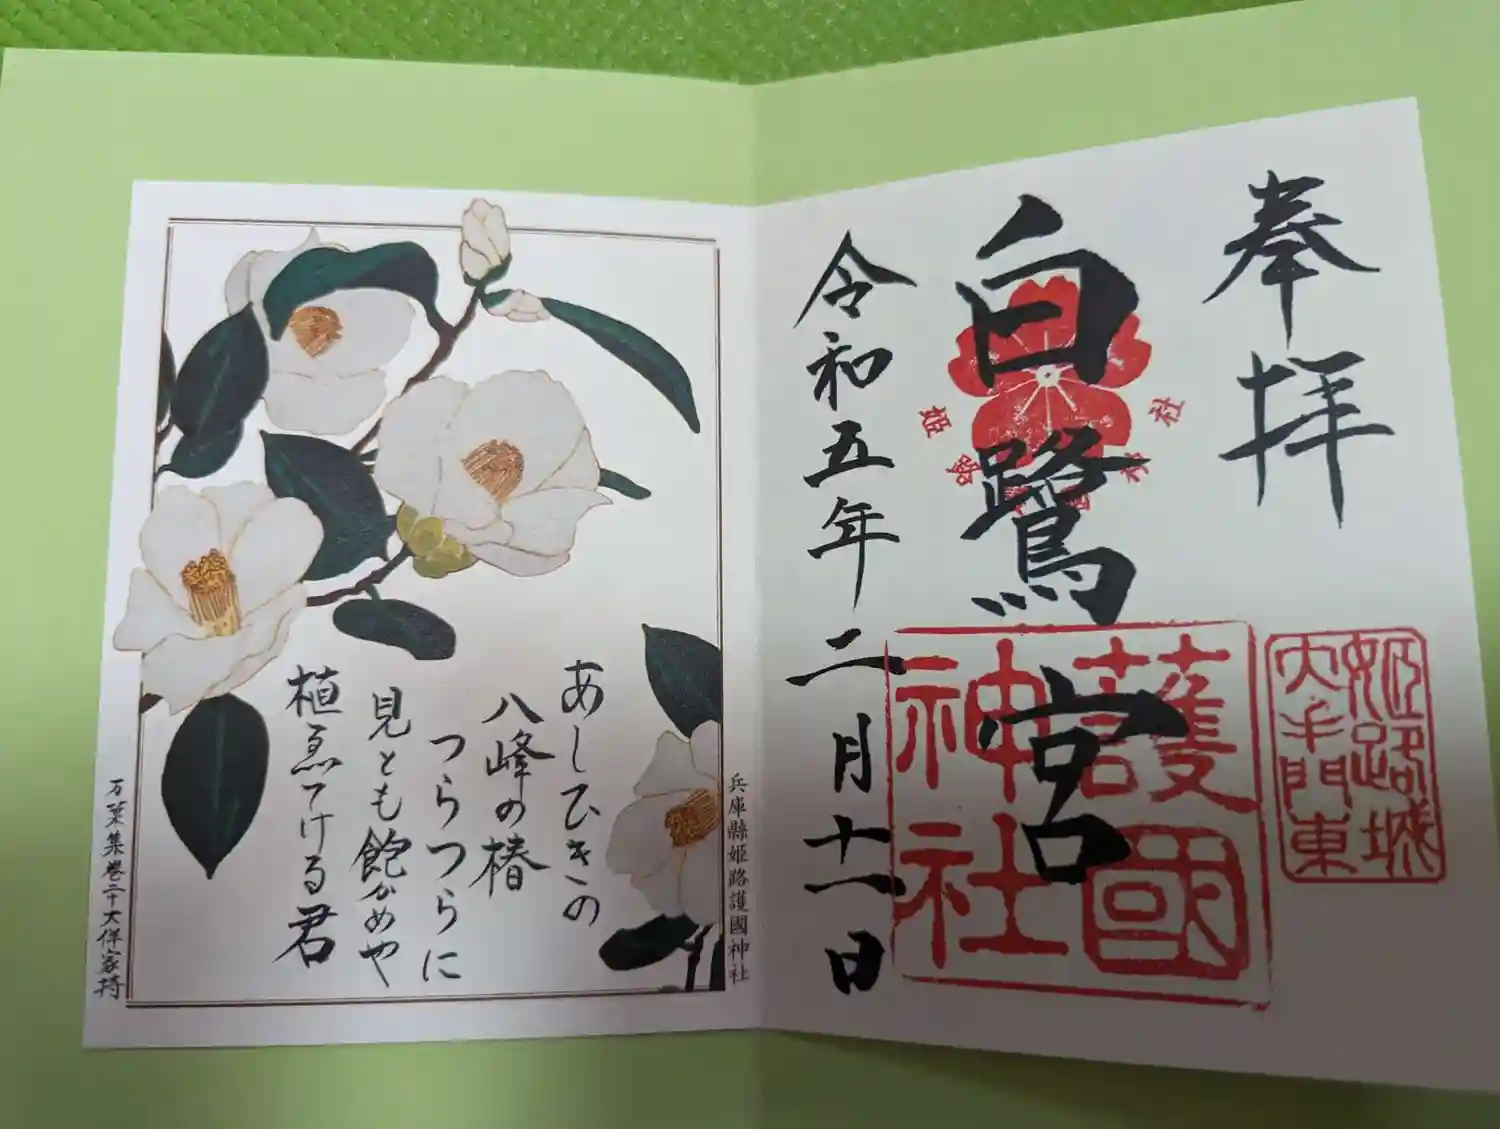 奉拝
白鷺宮
令和五年二月十一日
姫路城
大手門東
護國
神社
姫路
神社
兵庫縣姫路護國神社
あしひきの
八峰の椿
つらつらに
見とも飽かめや
植ゑてける君
万葉集巻二十大伴家持